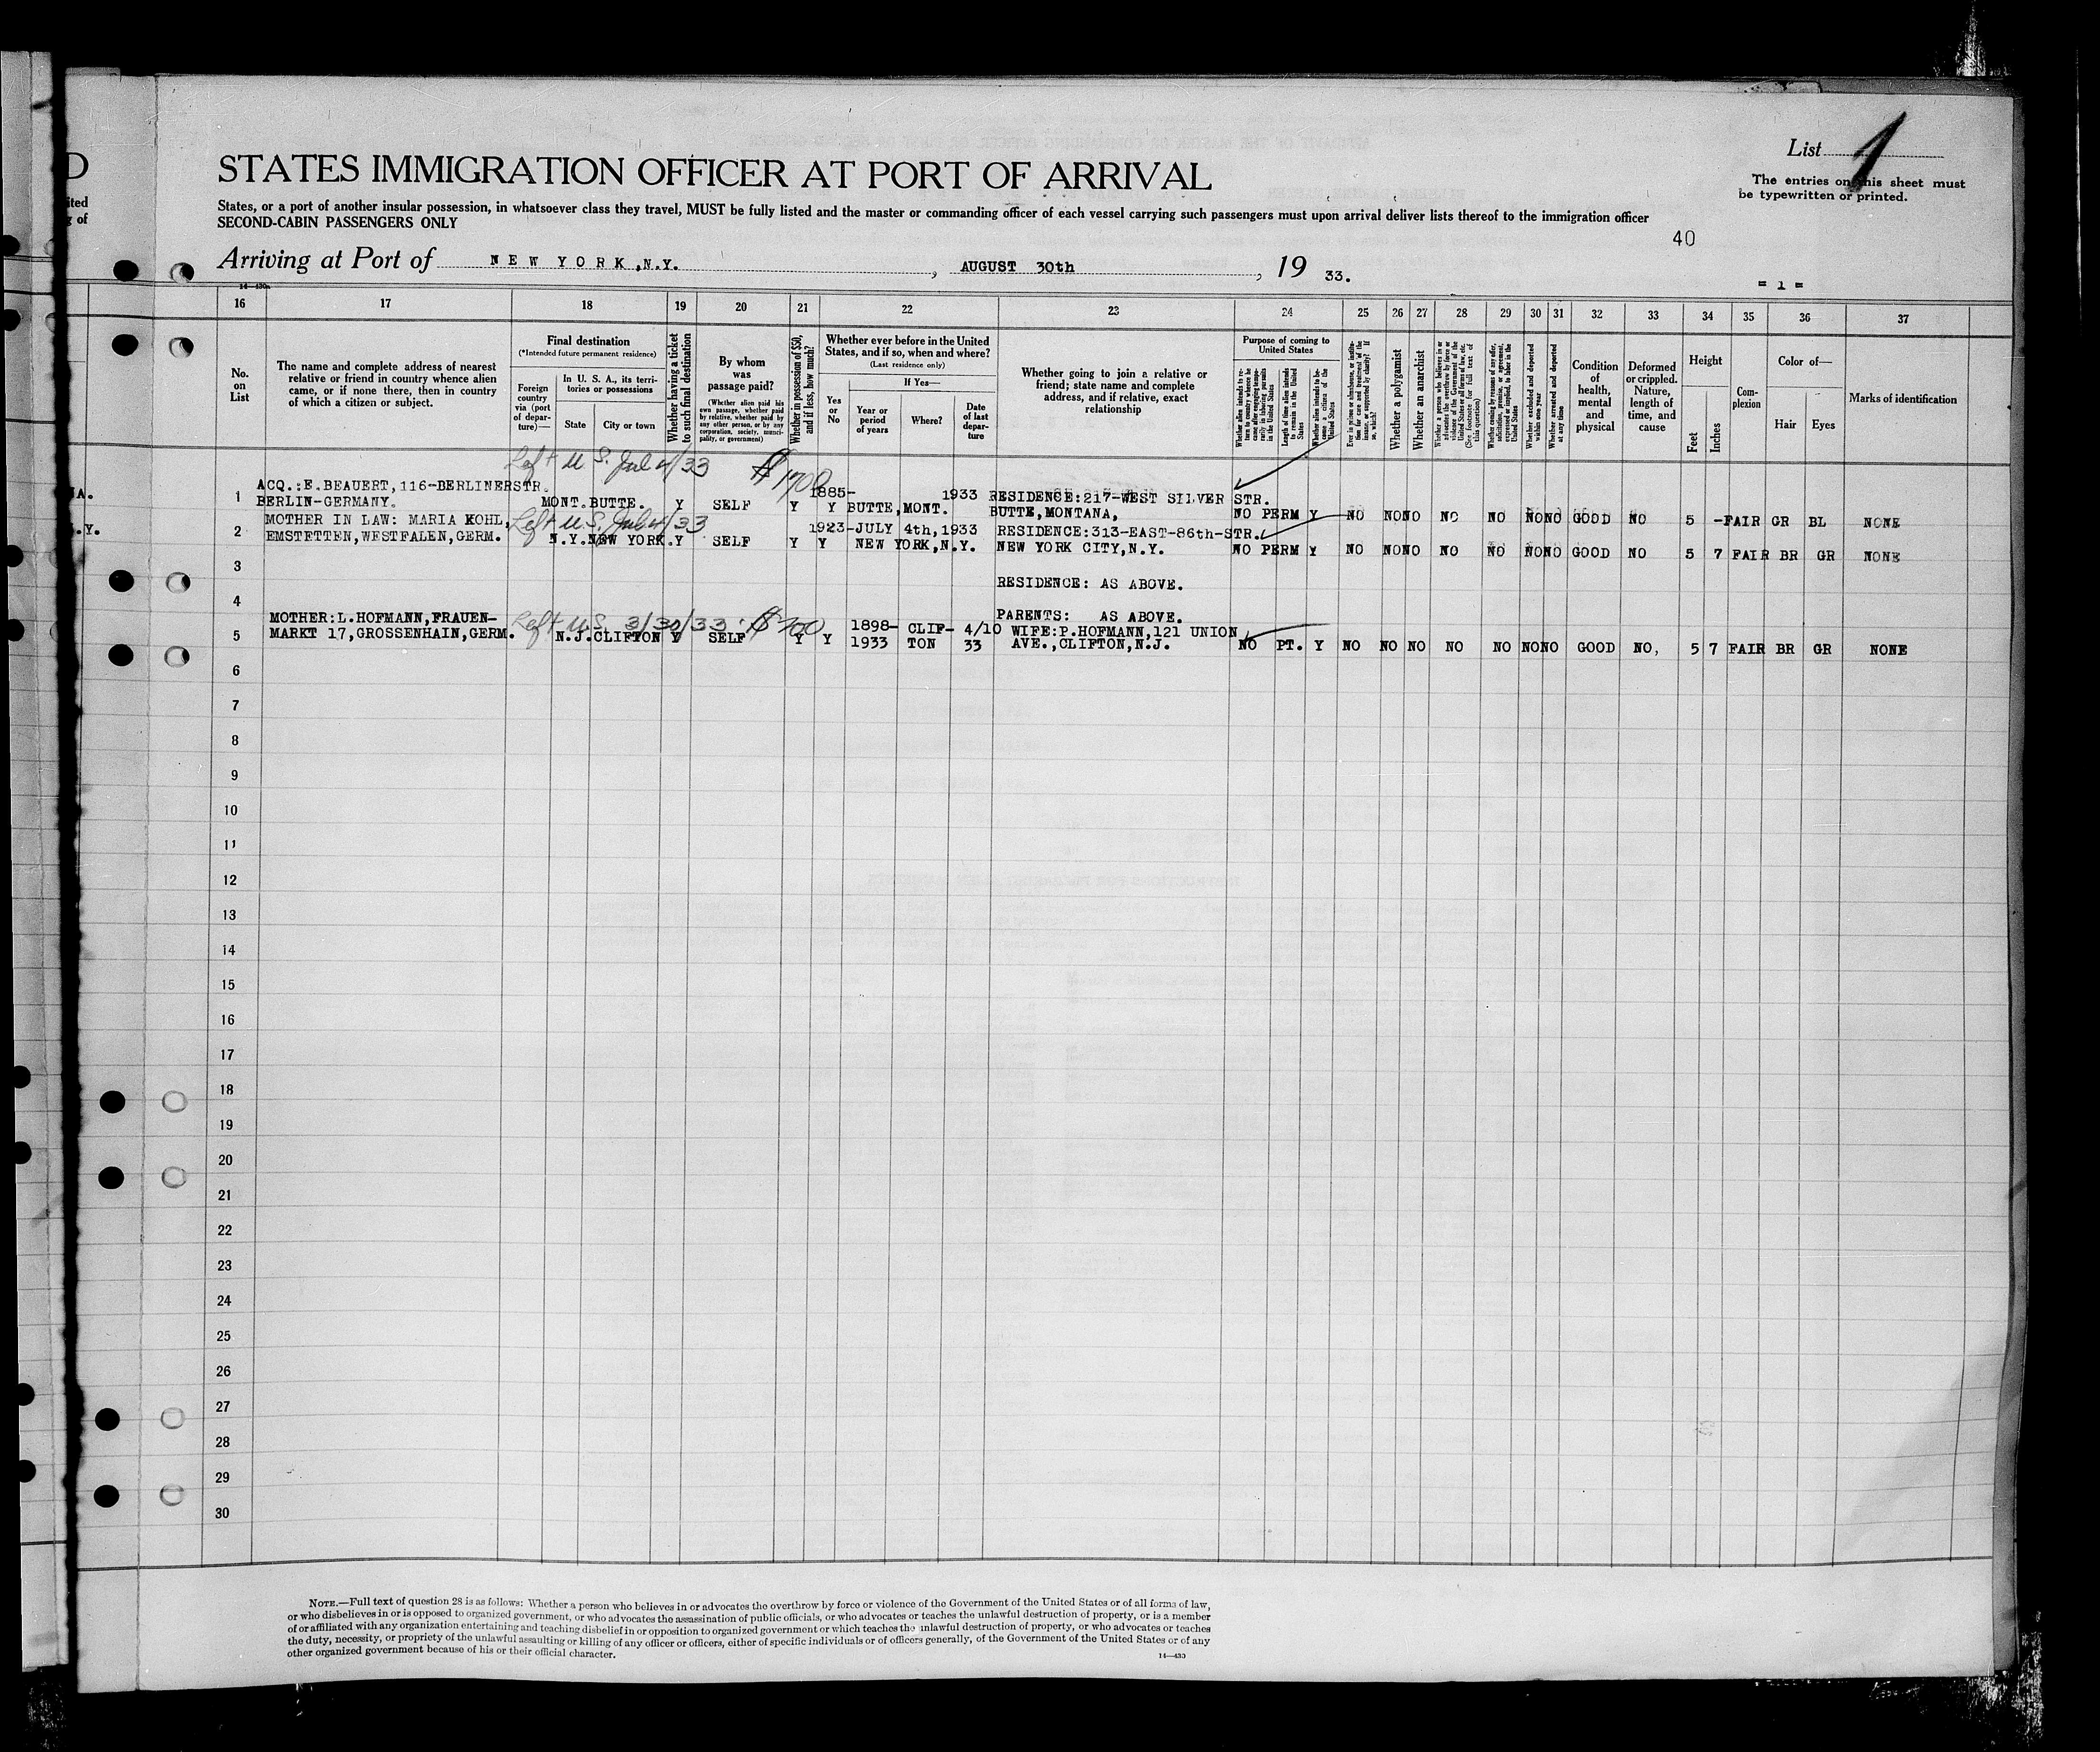 D
ited
g of
STATES IMMIGRATION OFFICER AT PORT OF ARRIVAL
List 1
The entries on this sheet must
be typewritten or printed.
States, or a port of another insular possession, in whatsoever class they travel, MUST be fully listed and the master or commanding officer of each vessel carrying such passengers must upon arrival deliver lists thereof to the immigration officer
SECOND-CABIN PASSENGERS ONLY
40
Arriving at Port of NEW YORK,N.Y. , AUGUST 30th , 19 33.
= 1 =
16 17 18 19 20 21 22 23 24 25 26 27 28 29 30 31 32 33 34 35 36 37
No.
on
List
The name and complete address of nearest
relative or friend in country whence alien
came, or if none there, then in country
of which a citizen or subject.
Final destination
(*Intended future permanent residence)
Foreign
country
via (port
of depar-
ture)—
In U. S. A., its terri-
tories or possessions
State
City or town
Whether having a ticket
to such final destination
By whom
was
passage paid?
(Whether alien paid his
own passage, whether paid
by relative, whether paid by
any other person, or by any
corporation, society, munici-
pality, or government)
Whether in possession of $50,
and if less, how much?
Whether ever before in the United
States, and if so, when and where?
(Last residence only)
Yes
or
No
If Yes—
Year or
period
of years
Where?
Date
of last
depar-
ture
Whether going to join a relative or
friend; state name and complete
address, and if relative, exact
relationship
Purpose of coming to
United States
Whether a polygamist
Whether an anarchist
Whether excluded and deported
within one year
Whether arrested and deported
at any time
Condition
of
health,
mental
and
physical
Deformed
or crippled.
Nature,
length of
time, and
cause
Height
Feet
Inches
Com-
plexion
Color of—
Hair
Eyes
Marks of identification
Left U.S. Jul 4/33 $1700
NA. 1 ACQ.:E.BEAUERT,116-BERLINERSTR.
BERLIN-GERMANY. MONT.BUTTE. Y SELF Y Y 1885- BUTTE,MONT. 1933 RESIDENCE:217-WEST SILVER STR.
BUTTE,MONTANA, NO PERM Y NO NO NO NO NO NO NO GOOD NO 5 - FAIR GR BL NONE
.Y. 2 MOTHER IN LAW: MARIA KOHL, Left U.S. Jul 4/33 1923-JULY 4th,1933 RESIDENCE:313-EAST-86th-STR.
EMSTETTEN,WESTFALEN,GERM. N.Y.NEW YORK.Y SELF Y Y NEW YORK,N.Y. NEW YORK CITY,N.Y. NO PERM Y NO NO NO NO NO NO NO GOOD NO 5 7 FAIR BR GR NONE
3 RESIDENCE: AS ABOVE.
4 PARENTS: AS ABOVE.
MOTHER:L.HOFMANN,FRAUEN- Left U.S. 3/30/33 $700 1898- CLIF- 4/10 WIFE:P.HOFMANN,121 UNION
5 MARKT 17,GROSSENHAIN,GERM. N.J.CLIFTON Y SELF Y Y 1933 TON 33 AVE.,CLIFTON,N.J. NO PT. Y NO NO NO NO NO NO NO GOOD NO, 5 7 FAIR BR GR NONE
6
7
8
9
10
11
12
13
14
15
16
17
18
19
20
21
22
23
24
25
26
27
28
29
30
NOTE.—Full text of question 28 is as follows: Whether a person who believes in or advocates the overthrow by force or violence of the Government of the United States or of all forms of law,
or who disbelieves in or is opposed to organized government, or who advocates the assassination of public officials, or who advocates or teaches the unlawful destruction of property, or is a member
of or affiliated with any organization entertaining and teaching disbelief in or opposition to organized government or which teaches the unlawful destruction of property, or who advocates or teaches
the duty, necessity, or propriety of the unlawful assaulting or killing of any officer or officers, either of specific individuals or of officers generally, of the Government of the United States or of any
other organized government because of his or their official character.
14—430